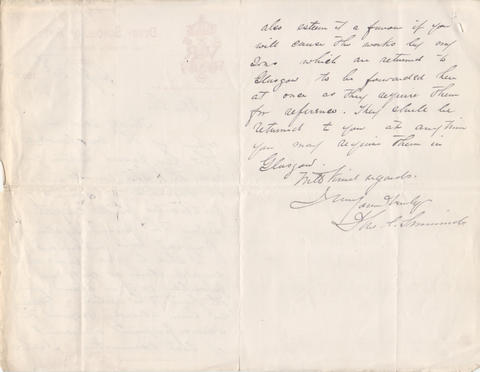 also esteem it a favour if you
will cause the works by my
Sons which are returned to
Glasgow to be forwarded them
at once as they require them
for reference. They shall be
returned to you at any time
you may require them in
Glasgow.
With kind regards.
I am
Yours truly